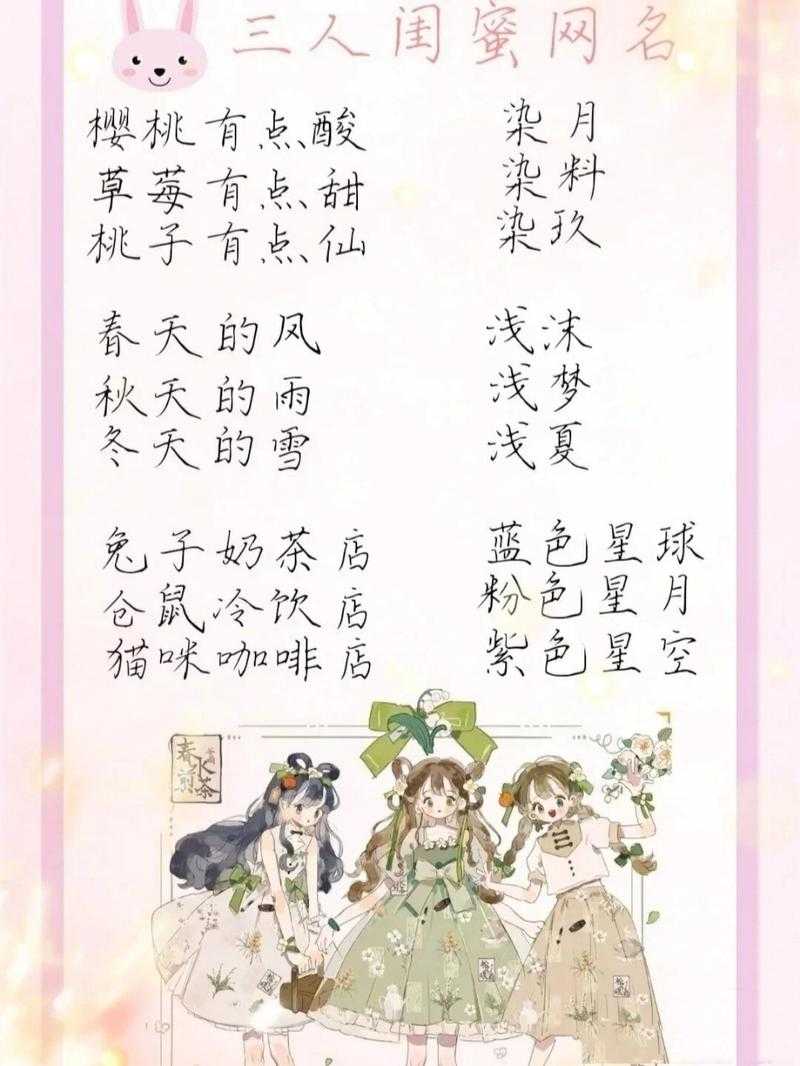 三人闺蜜网名
樱桃有点酸
草莓有点甜
桃子有点仙
染月
染料
染玖
春天的风
秋天的雨
冬天的雪
浅沫
浅梦
浅夏
兔子奶茶店
仓鼠冷饮店
猫咪咖啡店
蓝色星球
粉色星月
紫色星空